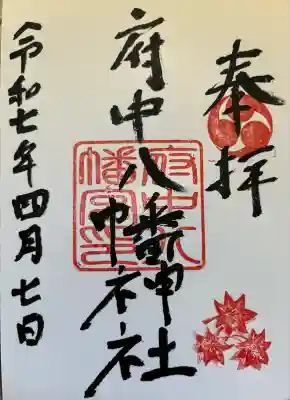 奉拝
府中八幡神社
令和七年四月七日